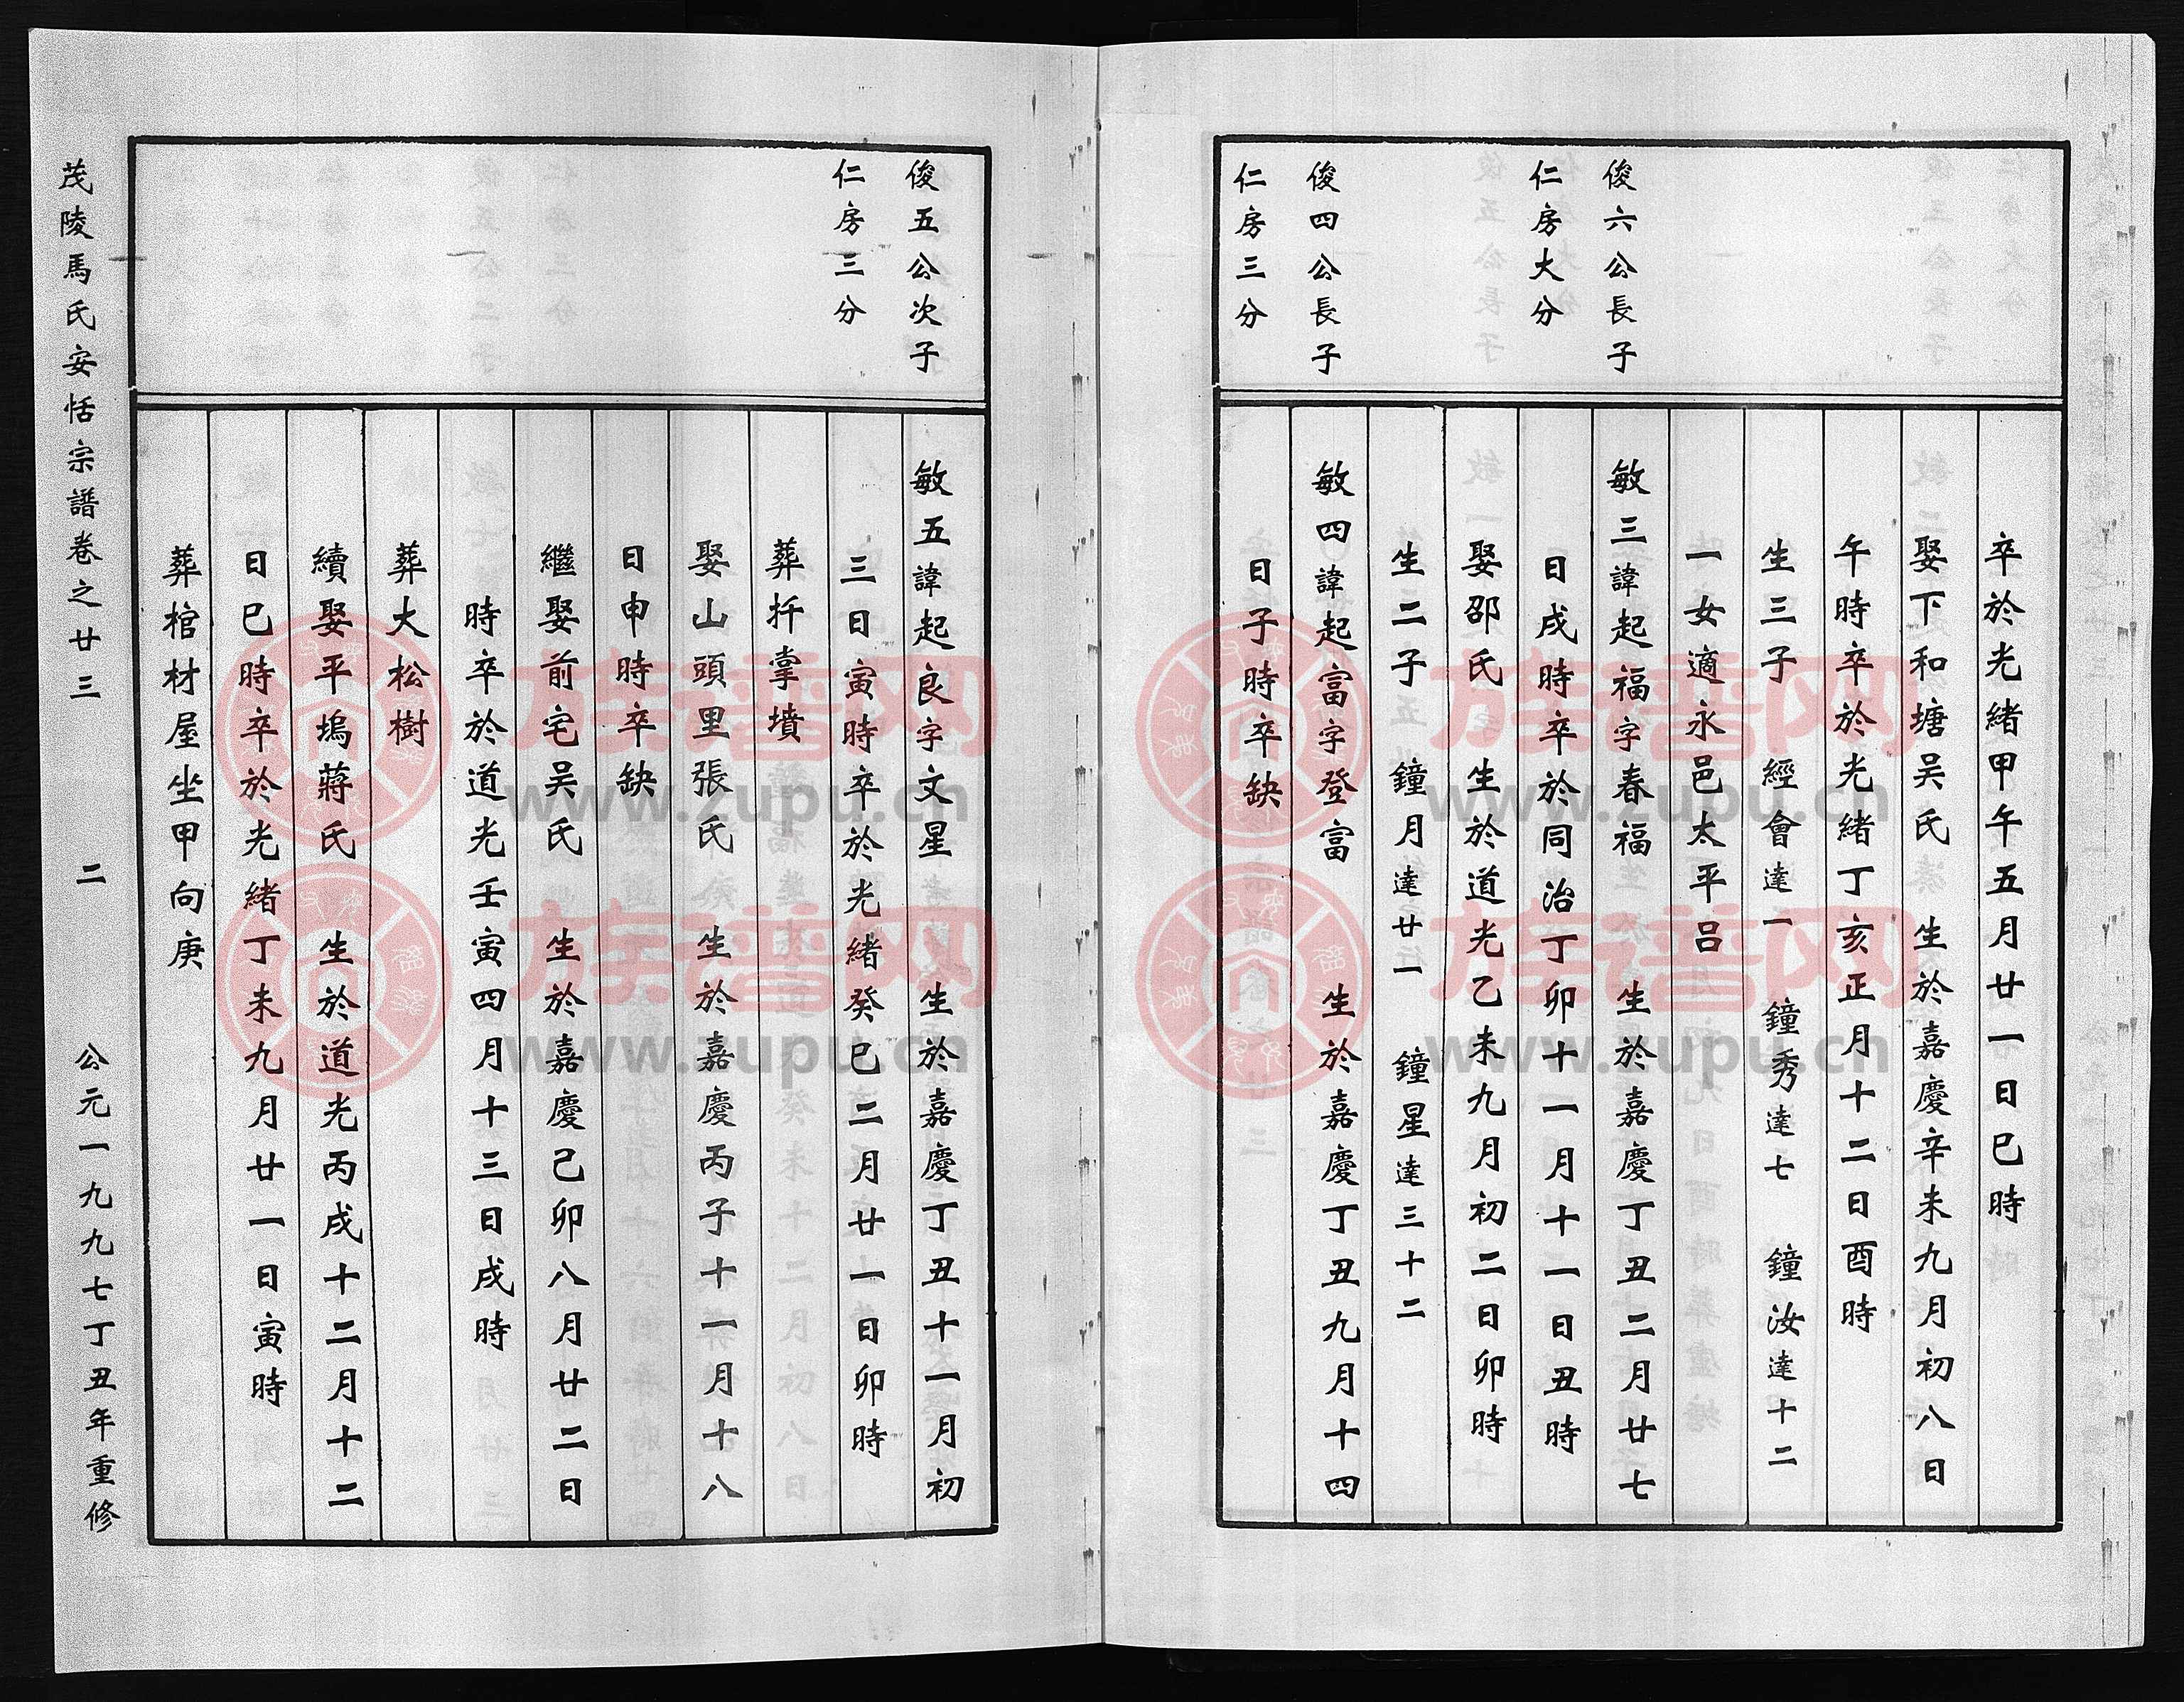 卒於光緒甲午五月廿一日巳時
娶下和塘吴氏 生於嘉慶辛未九月初八日
午時卒於光緒丁亥正月十二日酉時
生三子 經會達一 鐘秀達七 鐘汝達十二
一女適永邑太平吕
俊六公長子
仁房大分
敏三諱起福字春福 生於嘉慶丁丑二月廿七
日戌時卒於同治丁卯十一月十一日丑時
娶邵氏 生於道光乙未九月初二日卯時
生二子 鐘月達廿一 鐘星達三十二
俊四公長子
仁房三分
敏四諱起富字登富 生於嘉慶丁丑九月十四
日子時卒缺
俊五公次子
仁房三分
敏五諱起良字文星 生於嘉慶丁丑十一月初
三日寅時卒於光緒癸巳二月廿一日卯時
葬扦掌墳
娶山頭里張氏 生於嘉慶丙子十一月十八
日申時卒缺
繼娶前宅吴氏 生於嘉慶己卯八月廿二日
時卒於道光壬寅四月十三日戌時
葬大松樹
續娶平塢蔣氏 生於道光丙戌十二月十二
日巳時卒於光緒丁未九月廿一日寅時
葬棺材屋坐甲向庚
茂陵馬氏安恬宗譜卷之廿三 二 公元一九九七丁丑年重修
族譜网
www.zupu.cn
族譜网
www.zupu.cn
族譜网
www.zupu.cn
族譜网
www.zupu.cn